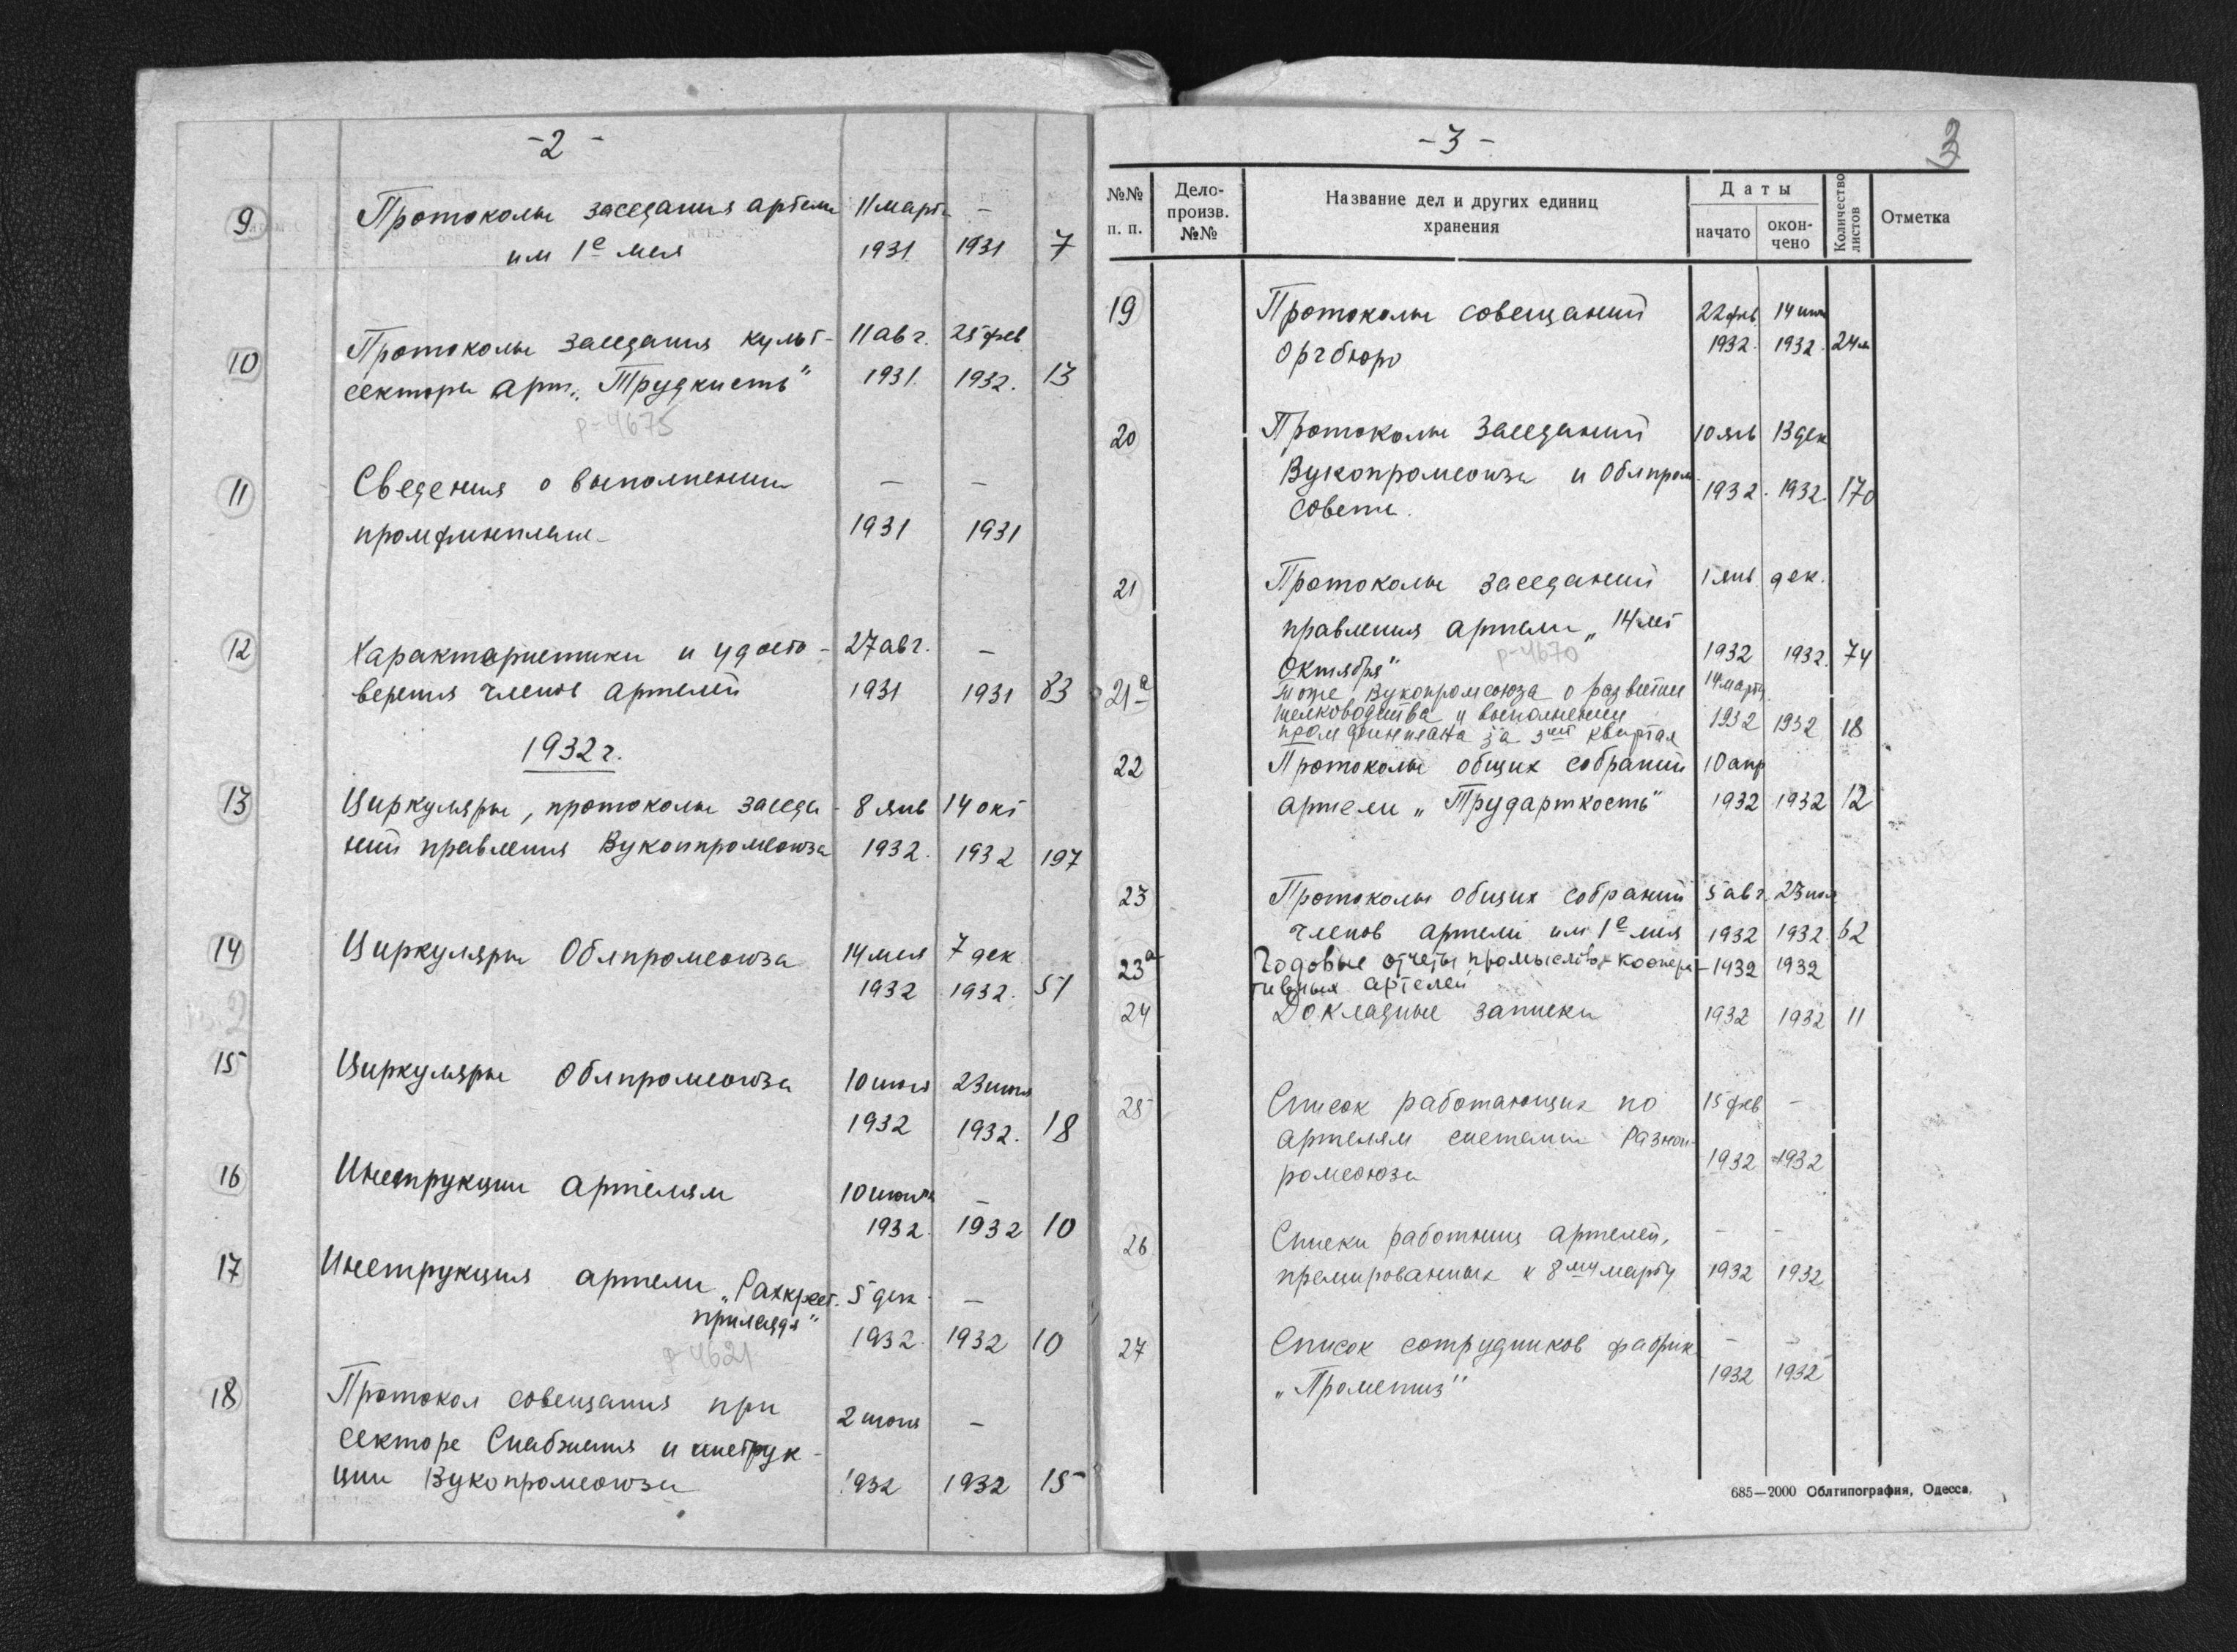 - 2 -
9 Протоколы заседания артели 11 марта -
им 1е мая 1931 1931 7
10 Протоколы заседания культ- 11 авг. 25 фев
сектора арт. „Трудкисть" 1931. 1932. 13
р-4675
11 Сведения о выполнении - -
промфинплана 1931 1931
12 Характеристики и удосто- 27 авг. -
верения членов артелей 1931 1931 83
1932 г.
13 Циркуляры, протоколы заседа- 8 янв 14 окт
ний правления Вукоппромсоюза 1932. 1932 197
14 Циркуляры Облпромсоюза 14 мая 7 дек
1932 1932. 51
15 Циркуляры Облпромсоюза 10 июня
1932 1932. 18
16 Инструкции артелям
1932. 1932 10
17 Инструкция артели 5 дек. -
1932. 1932 10
18 Протокол совещания при 2 июня -
секторе Снабжения и инструк-
ции Вукопромсоюза 1932 1932 15
- 3 -
3
№№ п. п. Дело- произв. №№ Название дел и других единиц хранения Даты начато окон- чено Количество листов Отметка
19 Протоколы совещаний 22 фев
Оргбюро 1932. 1932.
20 Протоколы заседаний 10 янв 13 дек
Вукопромсоюза и Облпром-
совета. 1932. 1932. 170
21 Протоколы заседаний 1 янв. дек.
правления артели „14 лет
Октября" 1932 1932. 74
р-4670
21а Тоже Вукопромсоюза о развитии 14 марта
шелководства и выполнении 1932 1932 18
промфинплана за 3ий квартал
22 Протоколы общих собраний 10 апр
артели „Трударткость" 1932 1932 12
23 Протоколы общих собраний 5 авг.
членов артели им 1е мая 1932 1932. 62
23а Годовые отчеты промыслово-коопера- 1932 1932
тивных артелей
24 Докладные записки 1932 1932 11
25 Список работающих по 15 фев -
артелям системы Разноп-
ромсоюза 1932 1932
26 Списки работниц артелей, - -
премированных к 8му марту 1932 1932
27 Список сотрудников фабрик - -
„Прометиз" 1932 1932
685—2000 Облтипография, Одесса.